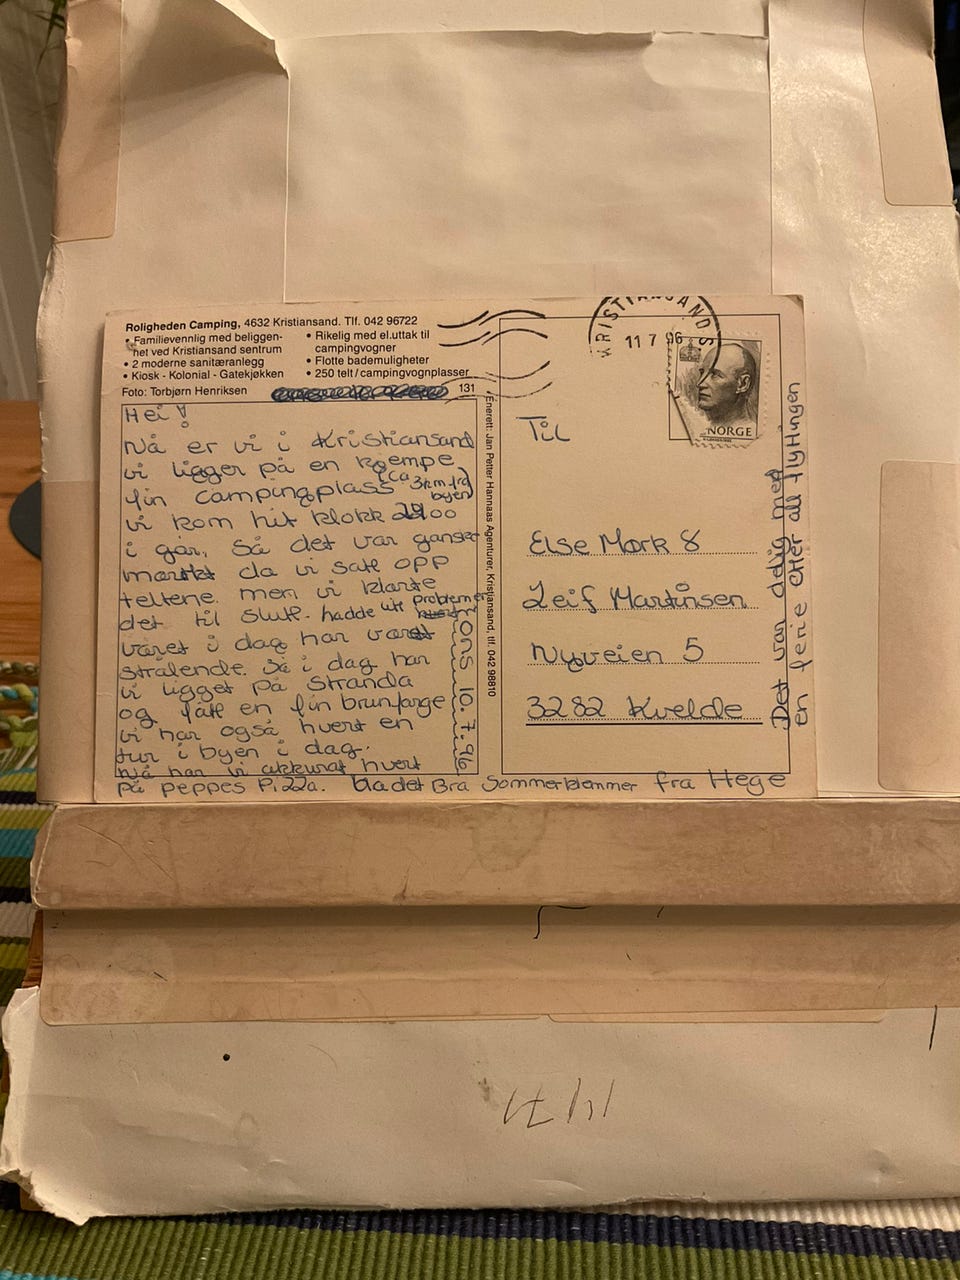 Roligheden Camping, 4632 Kristiansand. Tlf. 042 96722
• Familievennlig med beliggen-
het ved Kristiansand sentrum
• 2 moderne sanitæranlegg
• Kiosk - Kolonial - Gatekjøkken
• Rikelig med el.uttak til
campingvogner
• Flotte bademuligheter
• 250 telt/campingvognplasser
Foto: Torbjørn Henriksen
131
Hei!
Nå er vi i Kristiansand
vi ligger på en kjempe
fin campingplass (ca 3km fra
byen)
vi kom hit klokk 2200
i går, så det var ganske
mørkt da vi satt opp
teltene. men vi klarte
det til slutt. hadde litt problemer
været i dag har vært
strålende. så i dag har
vi ligget på stranda
og fått en fin brunfarge
vi har også hvert en
tur i byen i dag.
Nå har vi akkurat hvert
på peppes Pizza. Ha det Bra Sommerklemmer fra Hege
ONS 10.7.96
Enerett: Jan Petter Hannaas Agenturer, Kristiansand, tlf. 042 98810
KRISTIANSAND S
11 7 96
NORGE
Til
Else Mørk &
Leif Martinsen
Nyveien 5
3282 Kvelde
Det var deilig med
en ferie etter all flyttingen